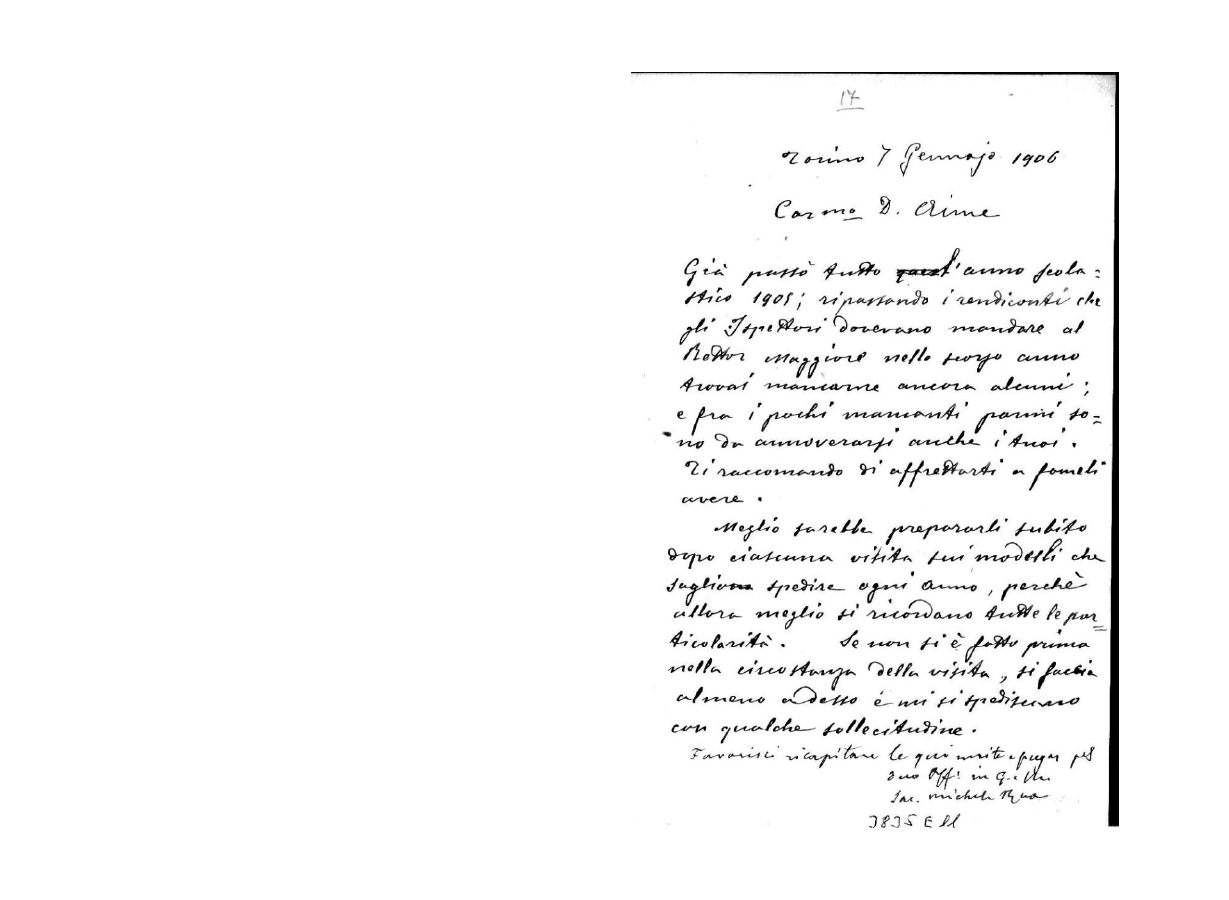 17
Torino 7 Gennajo 1906
Car.mo D. Aime
Già passò tutto l'anno scola=
stico 1905; ripassando i rendiconti che
gli Ispettori dovevano mandare al
Rettor Maggiore nello scorso anno
trovai mancarne ancora alcuni;
e fra i pochi mancanti parmi so=
no da annoverarsi anche i tuoi.
Ti raccomando di affrettarti a fameli
avere.
Meglio sarebbe prepararli subito
dopo ciascuna visita sui modelli che
soglio spedire ogni anno, perchè
allora meglio si ricordano tutte le par=
ticolarità. Se non si è fatto prima
nella circostanza della visita, si faccia
almeno adesso e mi si spediscano
con qualche sollecitudine.
Favorisci ricapitare le qui unite e pregar pel
tuo Aff. in G. e M.
Sac. Michele Rua
3835 E 11